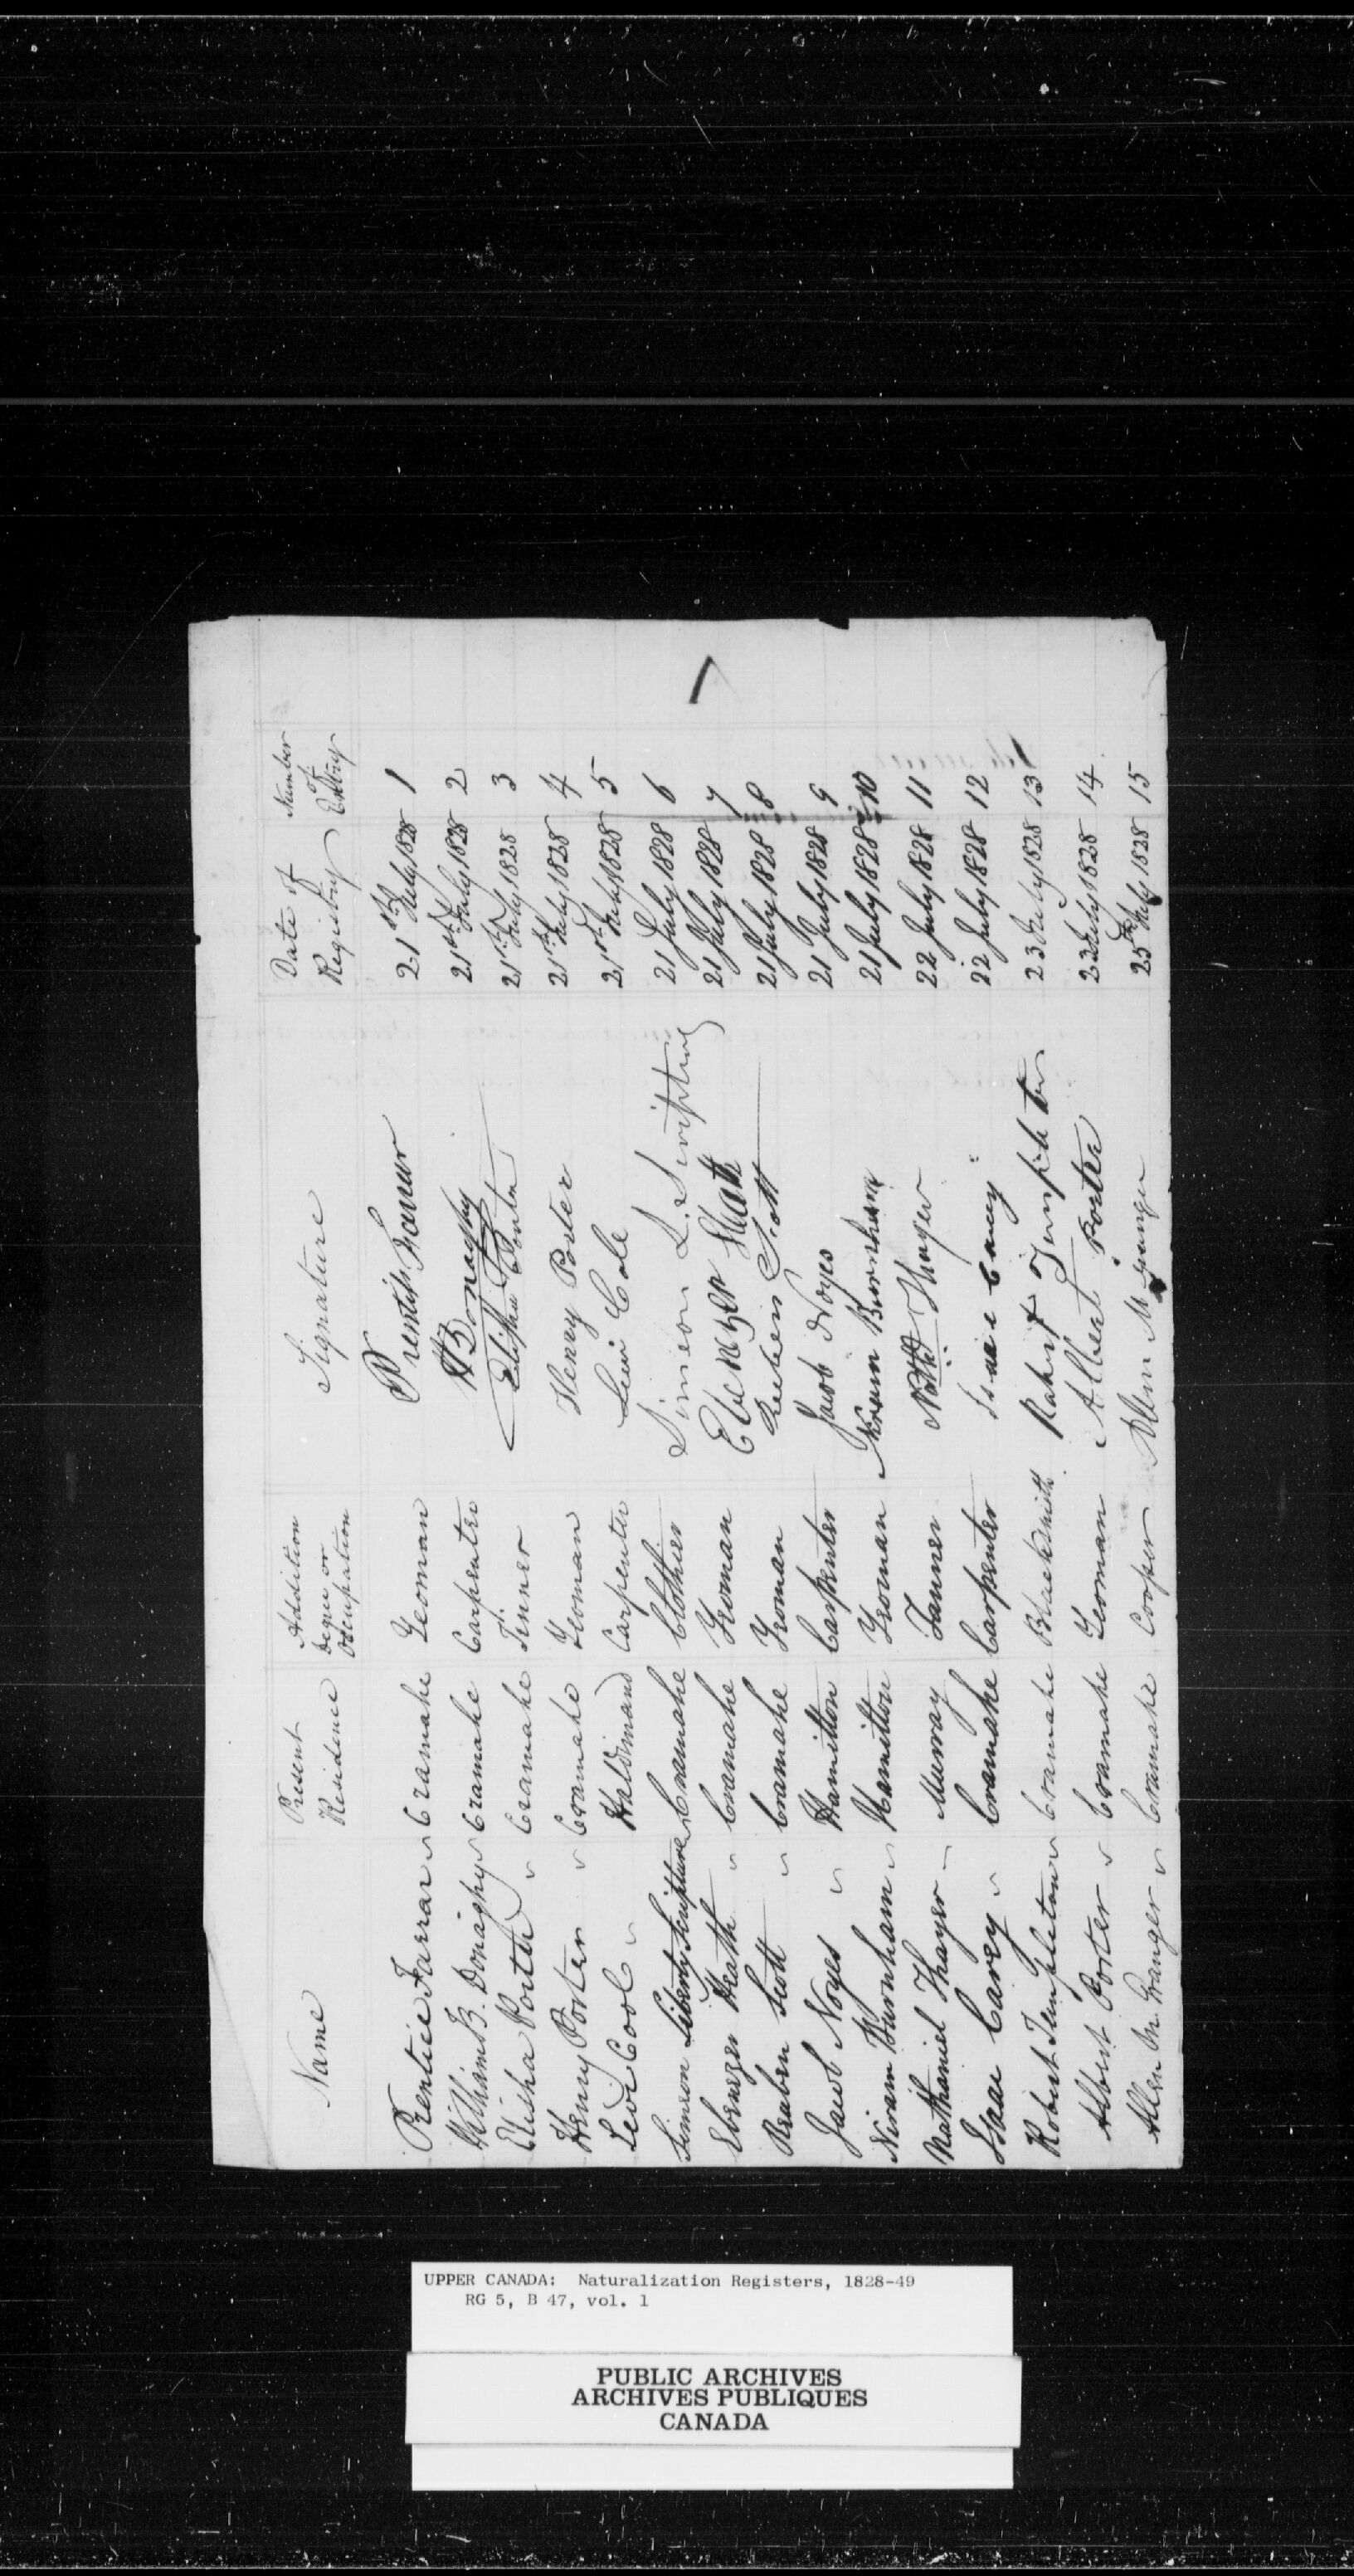 1
Name Present Residence Addition Degree or Occupation Signature Date of Registry Number of Entry
Prentice Farrar Cramahe Yeoman Prentiss Farrar 21st July 1828 1
William B. Donaghy Cramahe Carpenter Donaghy 21st July 1828 2
Elisha Porter Cramahe Tinner Elisha Porter 21st July 1828 3
Henry Porter Cramahe Yeoman Henry Porter 21st July 1828 4
Levi Cool Haldimand Carpenter Levi Cole 21st July 1828 5
Simeon Liberty Scripture Cramahe Clothier Simeon L. Scripture 21 July 1828 6
Ebenezer Heath Cramahe Yeoman Ebenezer Heath 21 July 1828 7
Reuben Scott Cramahe Yeoman Reuben Scott 21 July 1828 8
Jacob Noyes Hamilton Carpenter Jacob Noyes 21 July 1828 9
Niram Burnham Hamilton Yeoman Niram Burnham 21 July 1828 10
Nathaniel Thayer Murray Tanner Nathl Thayer 22 July 1828 11
Isaac Carey Cramahe Carpenter Isaac Carey 22 July 1828 12
Robert Templeton Cramahe Blacksmith Robert Templeton 23 July 1828 13
Albert Porter Cramahe Yeoman Albert Porter 23 July 1828 14
Allen M. Granger Cramahe Cooper Allen M Granger 25th July 1828 15
UPPER CANADA: Naturalization Registers, 1828-49
RG 5, B 47, vol. 1
PUBLIC ARCHIVES
ARCHIVES PUBLIQUES
CANADA